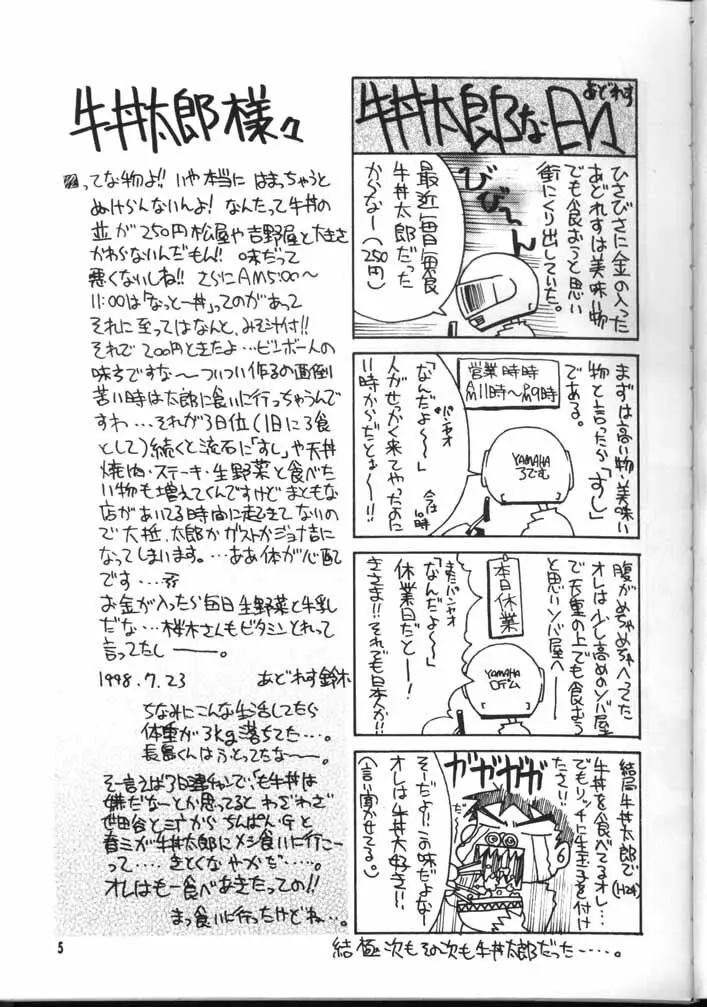 牛丼太郎な日々
あどれす
ひさびさに金の入った
あどれすは美味い物
でも食おうと思い
街にくり出していた。
びびーーん
最近毎日毎食
牛丼太郎だった
からなー(250円)
まずは高い物・美味い
物と言ったら「すし」
である。
営業時時
AM11時〜PM9時
YAMAHA
ろでむ
「なんだよ〜〜」
パンッオ
人がせっかく来てやったのに
11時からだとぉー!!
今は10時
腹がめちゃめちゃへってた
オレは少し高めのソバ屋
で天重の上でも食おう
と思いソバ屋へ──
本日休業
YAMAHA
ロデム
またパンッオ
「なんだよ〜〜」
休業日だとー!
きさま!!それでも日本人か!!
結局牛丼太郎で(H24)
牛丼を食べてるオレ…
でもリッチに生玉子を付け
たさ!!
ガガガガ
そーだよ!!この味だよなー
オレは牛丼大好き!!
(言い聞かせてる。)
結極次もその次も牛丼太郎だった……。
牛丼太郎様々
ってな物よ!! いや本当に はまっちゃうと
ぬけらんないんよ! なんたって牛丼の
並が250円松屋や吉野屋と大きさ
かわらないんだもん!! 味だって
悪くないしね!! さらにAM5:00〜
11:00は「なっとー丼」ってのがあって
それに至ってはなんと、みそ汁付!!
それで200円ときたよ…ビンボー人の
味方ですな〜ついつい作るの面倒
苦い時は太郎に食いに行っちゃうんで
すわ…それが3日位(1日に3食
として)続くと流石に「すし」や天丼
焼肉・ステーキ・生野菜と食べた
い物も増えてくんですけどまともな
店があいてる時間に起きてないの
で大抵、太郎かガストかジョナ吉に
なってしまいます。…ああ体が心配
です…
お金が入ったら毎日生野菜と牛乳
だな…桜木さんもビタミンとれって
言ってたし──。
1998.7.23 あどれす鈴木
ちなみにこんな生活してたら
体重が3kg落ちてた…。
長島くんはふとってたな〜〜。
そー言うば3日連チャンで、「も牛丼は
嫌だなーとか思ってると わざわざ
世田谷と三丁から ちんぱん・Gと
春ミが牛丼太郎にメシ食いに行こー
って……きとくなやからだ……。
オレはもー食べあきたっての!!
まっ食いに行ったけどね…。
5